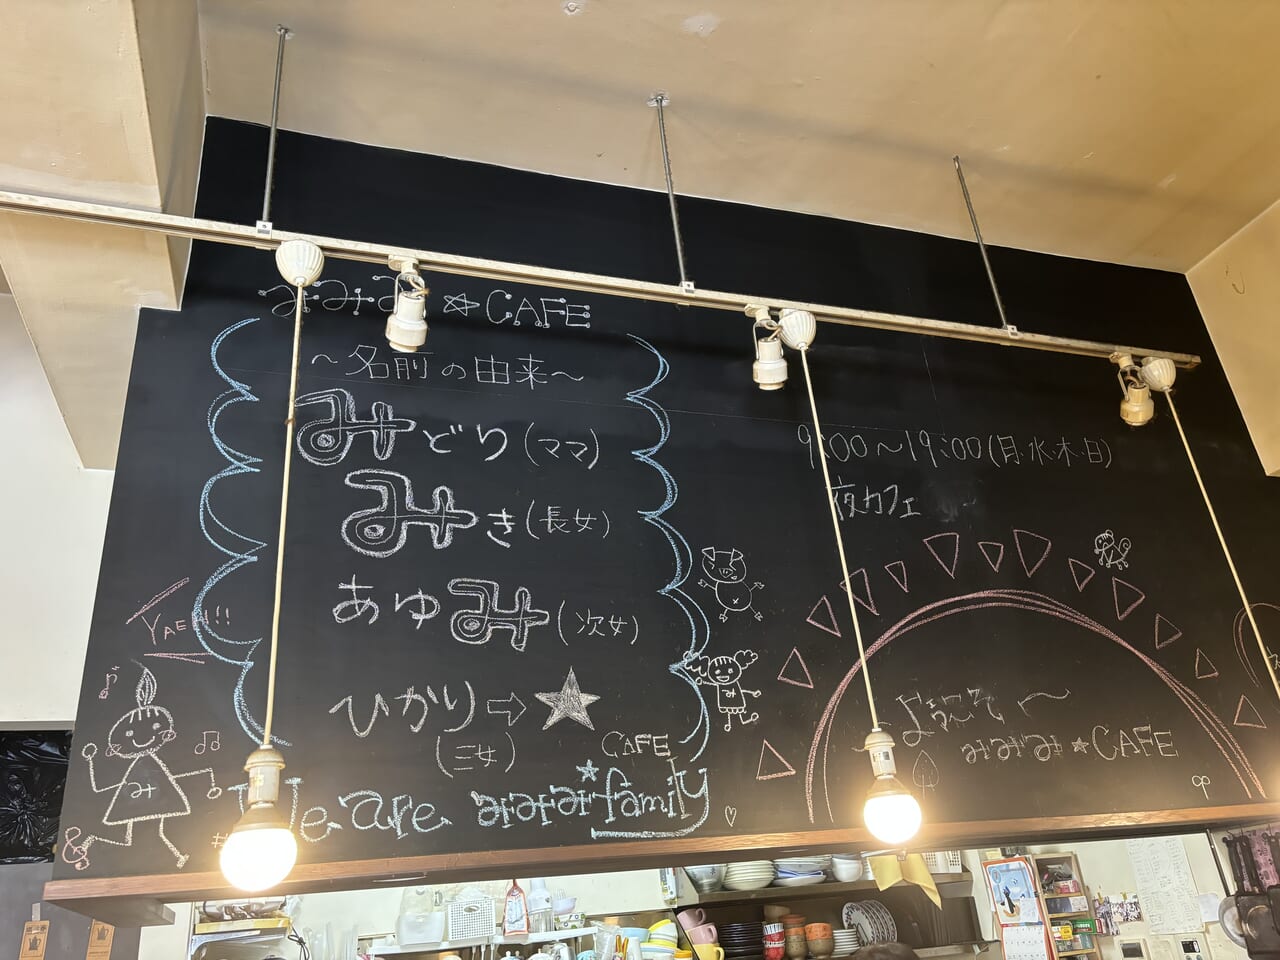 みみみ☆CAFE
～名前の由来～
みどり(ママ)
みき(長女)
あゆみ(次女)
ひかり⇨★
(三女)
CAFE
We are みみみ★family
YAEH!!
み
み
9:00～19:00(月・水・木・日)
夜カフェ
ようこそ～
みみみ★CAFE